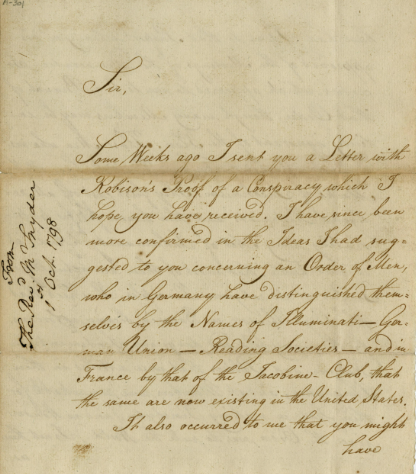 Sir,
Some Weeks ago I sent you a Letter with
Robison's Proof of a Conspiracy which I
hope you have received. I have since been
more confirmed in the Ideas I had sug-
gested to you concerning an Order of Men,
who in Germany have distinguished them-
selves by the Names of Illuminati — Ger-
man Union — Reading Societies — and in
France by that of the Jacobine-Club, that
the same are now existing in the United States.
It also occurred to me that you might
have
From
The Revd Mr Snyder
1st Oct. 1798